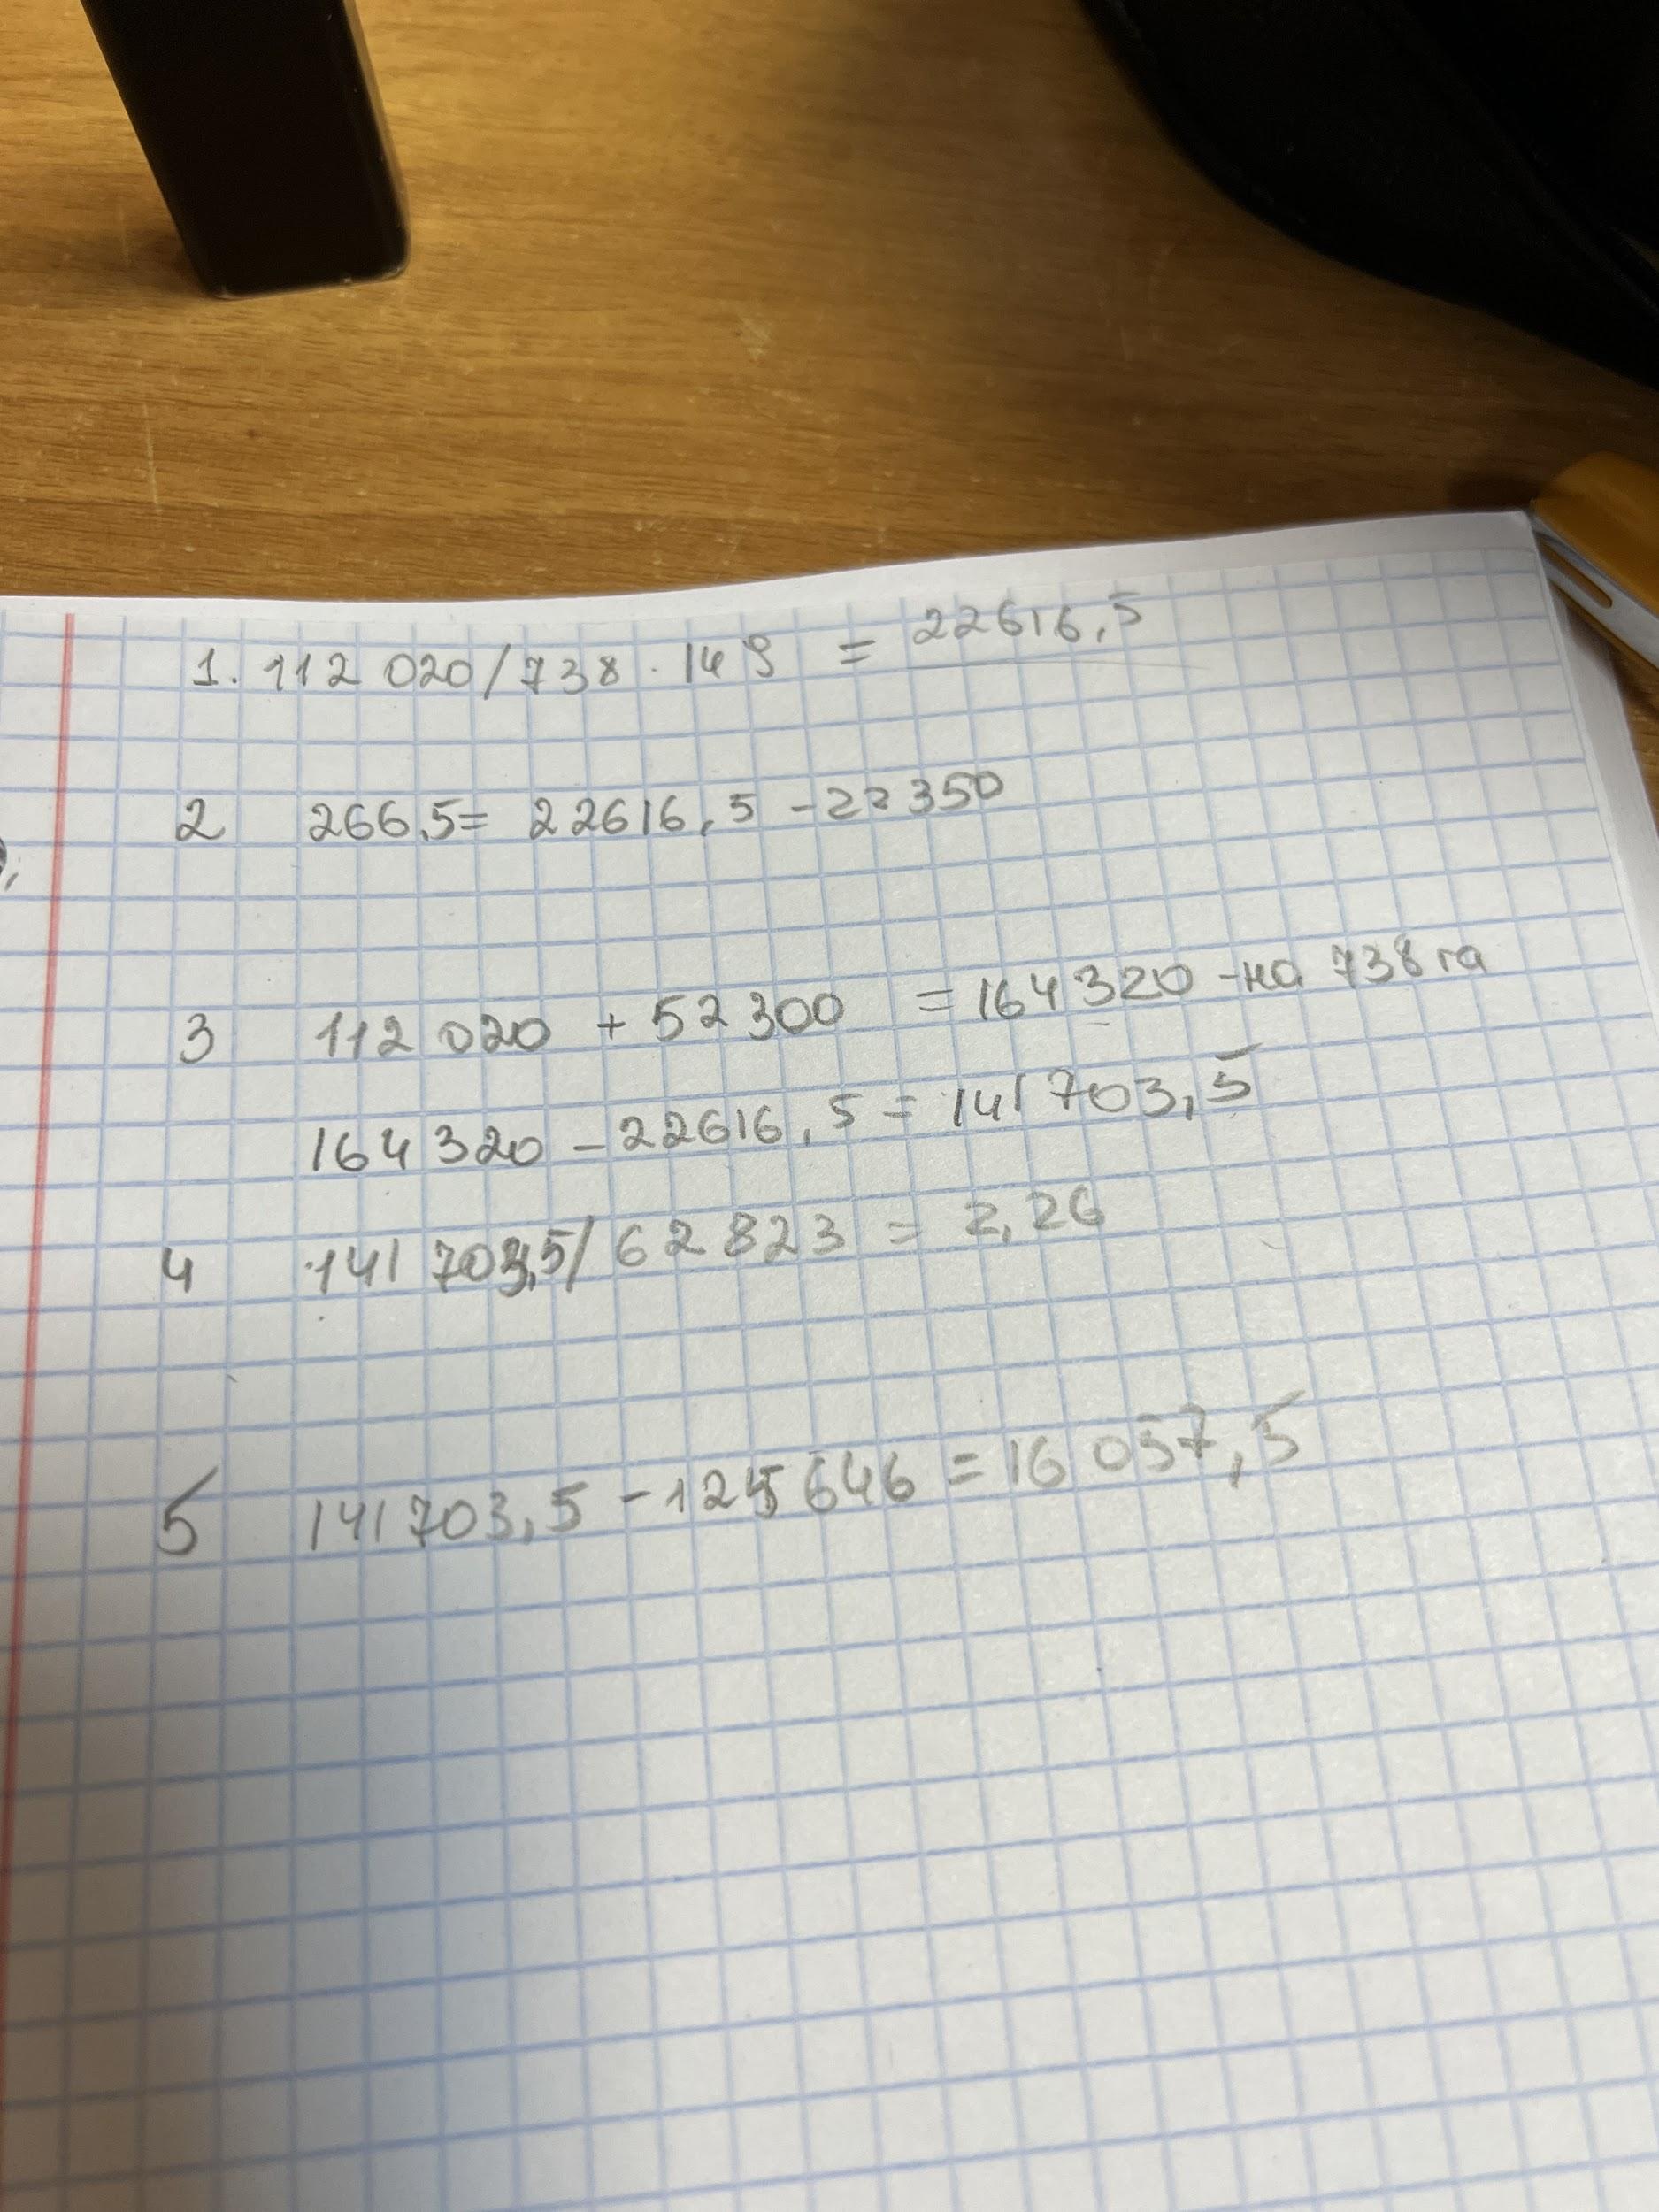 1. 112 020/738 · 149 = 22616,5
2 266,5= 22616,5 -22350
3 112 020 + 52300 = 164320 -на 738 га
164 320 - 22616,5 = 141703,5
4 141 703,5/ 62823 = 2,26
5 141703,5 - 125646 = 16057,5